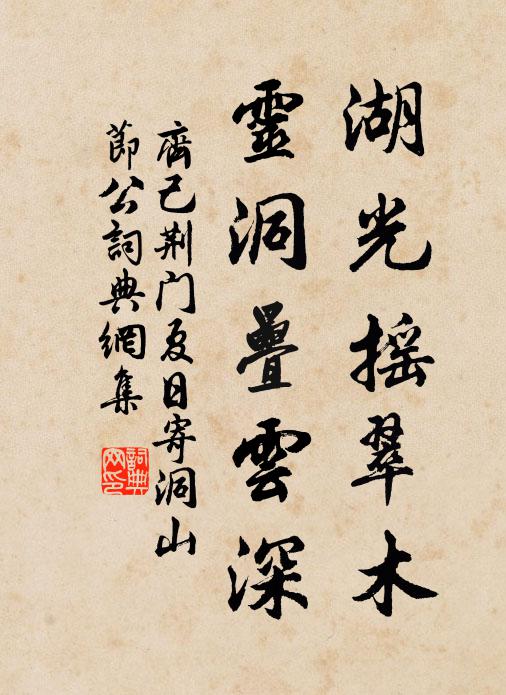 湖光摇翠木
靈洞疊雲深
齊己荆门夏日寄洞山
節公詞典網集
詞典網印